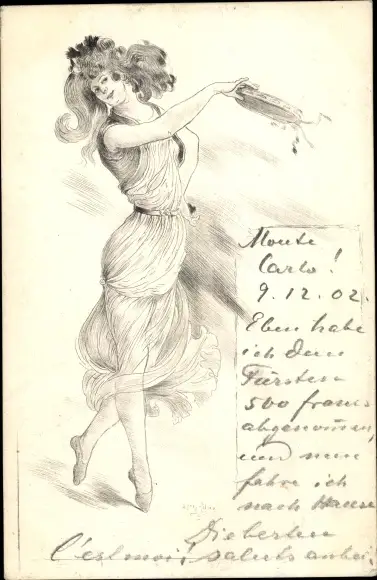 Monte
Carlo!
9.12.02.
Eben habe
ich dem
Fürsten
500 francs
abgenommen,
und nun
fahre ich
nach Hause
C'est moi! saluts